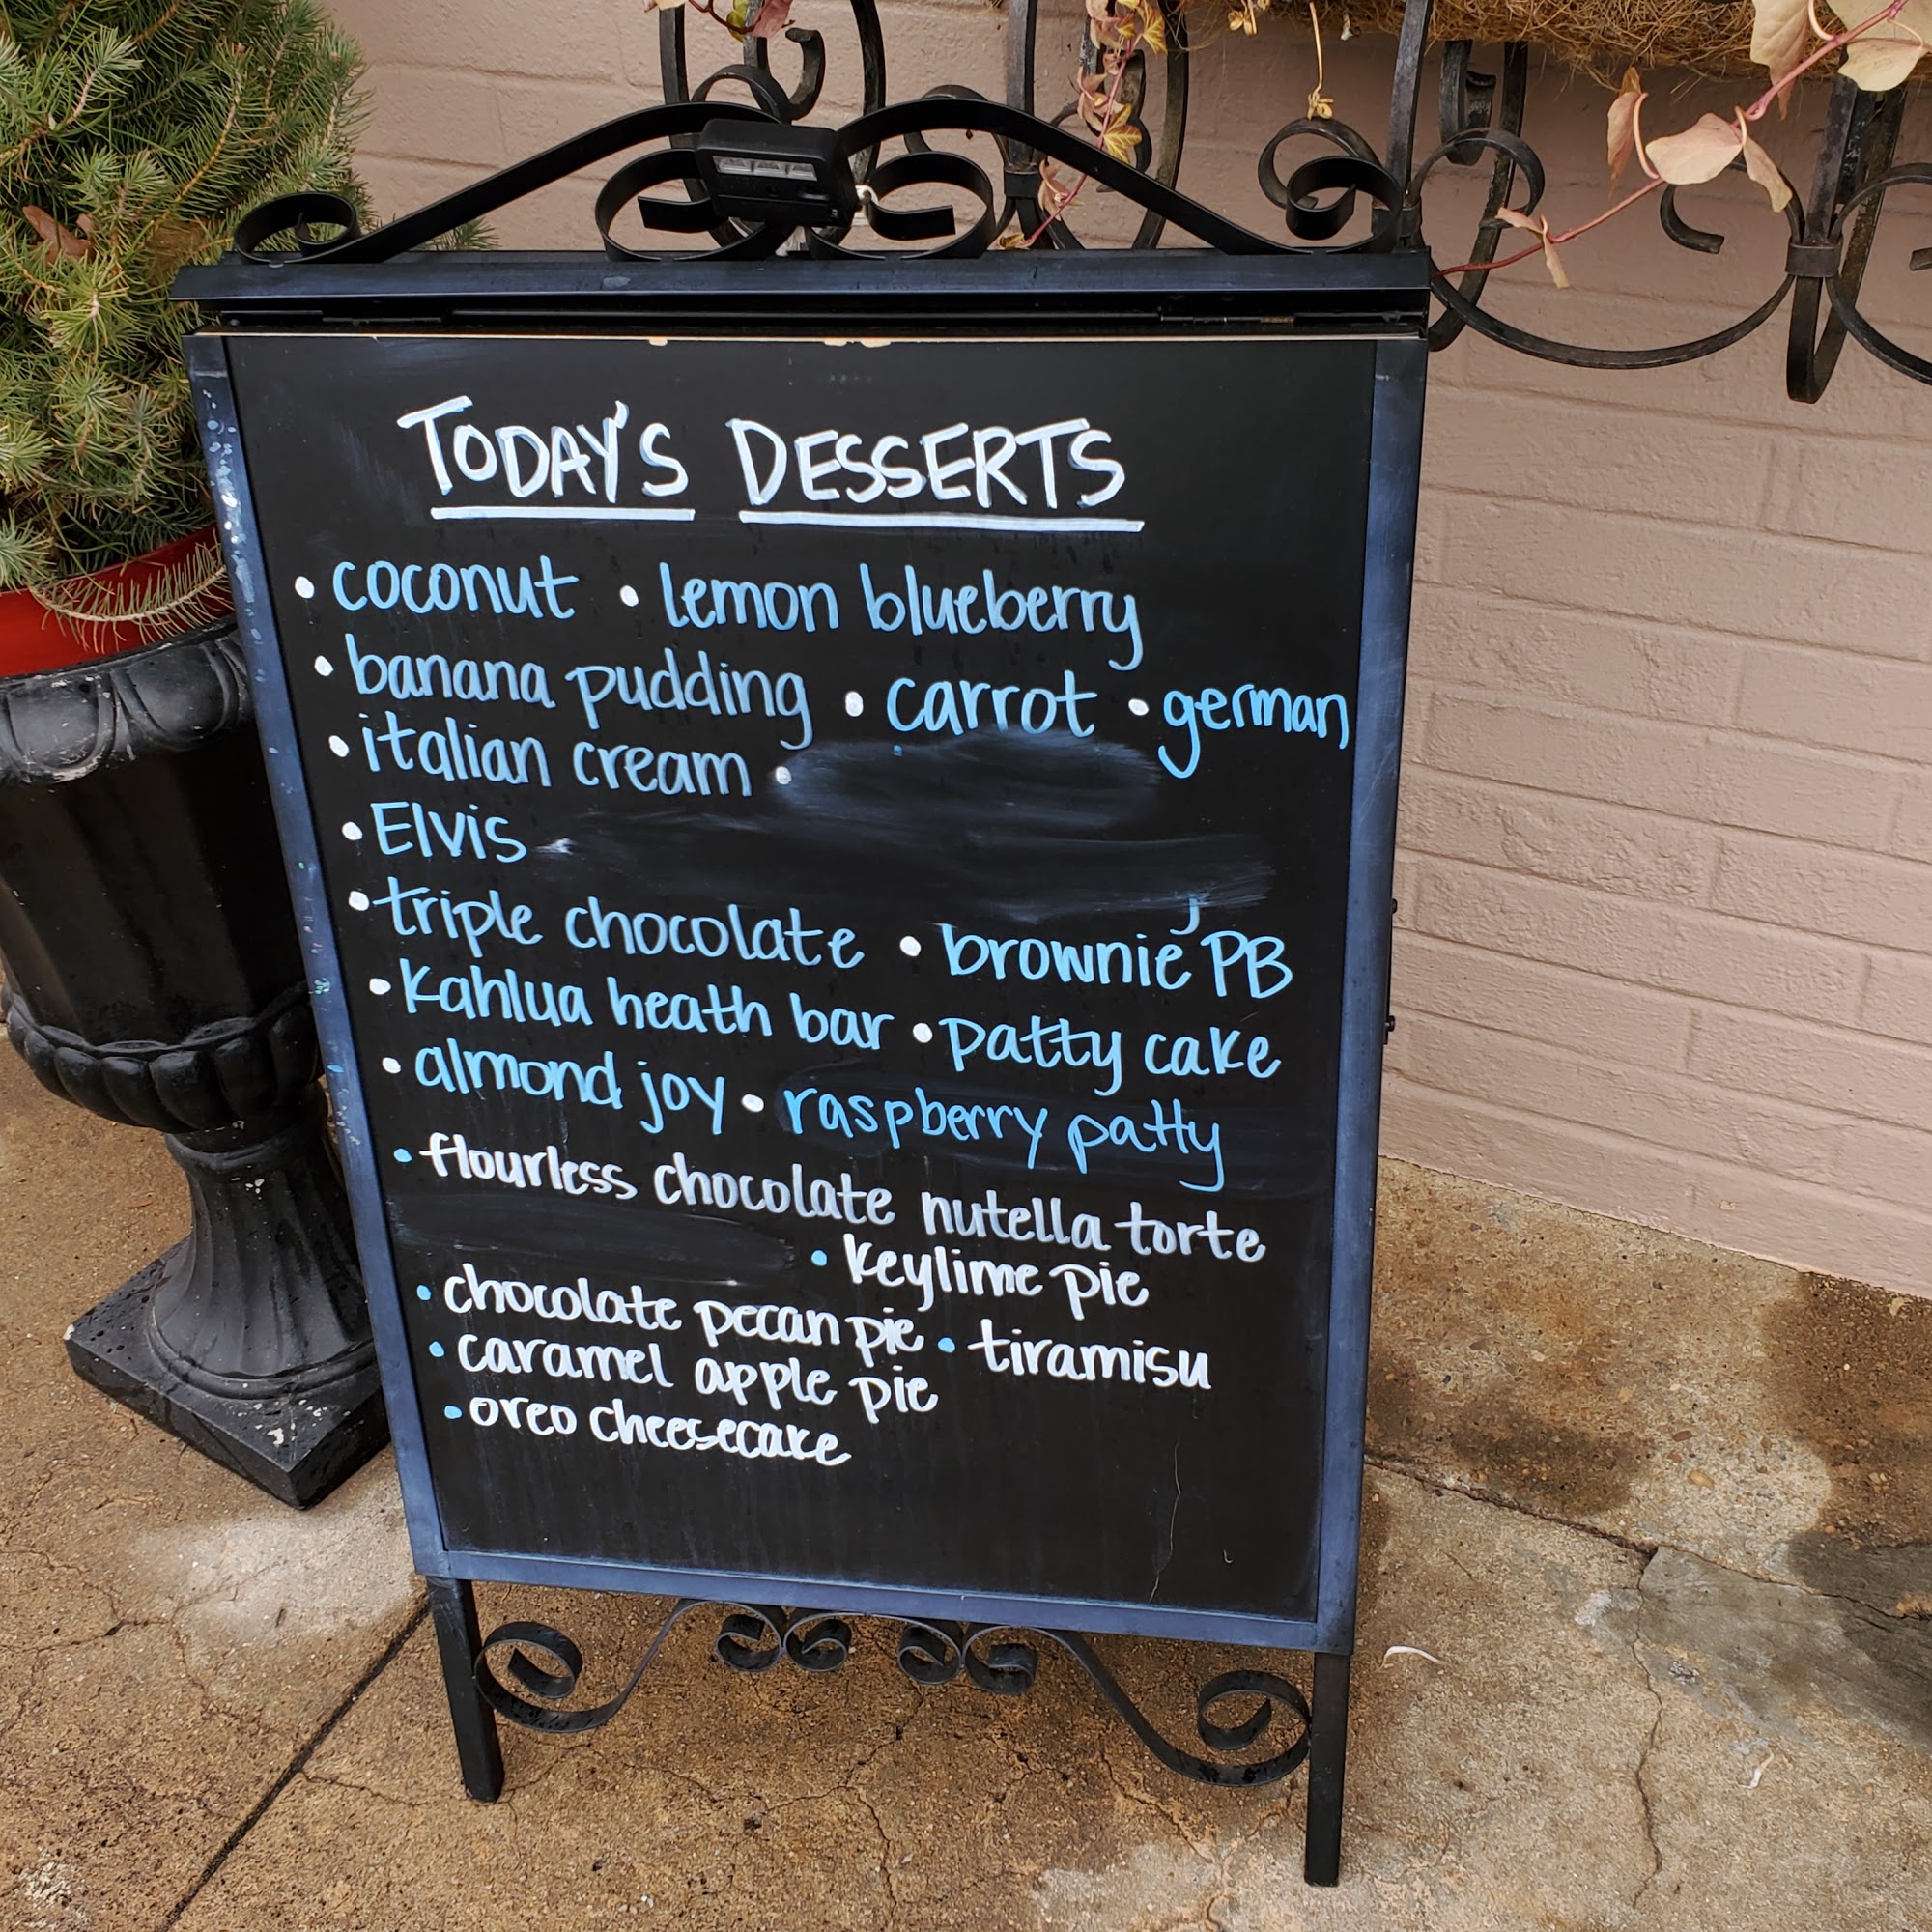 TODAY'S DESSERTS
• coconut • lemon blueberry
• banana pudding • carrot • german
• italian cream •
• Elvis
• triple chocolate • brownie PB
• Kahlua heath bar • patty cake
• almond joy • raspberry patty
• flourless chocolate nutella torte
• keylime pie
• chocolate pecan pie • tiramisu
• caramel apple pie
• oreo cheesecake